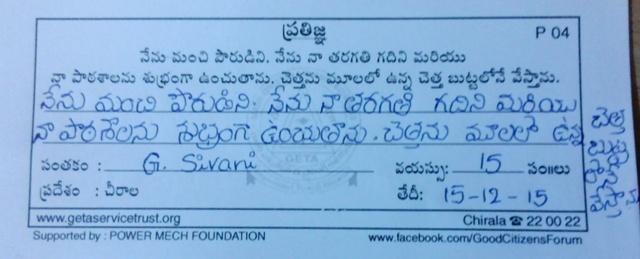 ప్రతిజ్ఞ
P 04
నేను మంచి పౌరుడిని. నేను నా తరగతి గదిని మరియు
నా పాఠశాలను శుభ్రంగా ఉంచుతాను. చెత్తను మూలలో ఉన్న చెత్త బుట్టలోనే వేస్తాను.
నేను మంచి పౌరుడిని. నేను నా తరగతి గదిని మరియు
నా పాఠశాలను శుభ్రంగా ఉంచుతాను. చెత్తను మూలలో ఉన్న
చెత్త
బుట్ట
లోనే
వేస్తాను
సంతకం : G. Sivani వయస్సు: 15 సం॥లు
ప్రదేశం : చీరాల తేదీ: 15-12-15
www.getaservicetrust.org Chirala ☎ 22 00 22
Supported by : POWER MECH FOUNDATION www.facebook.com/GoodCitizensForum
GETA